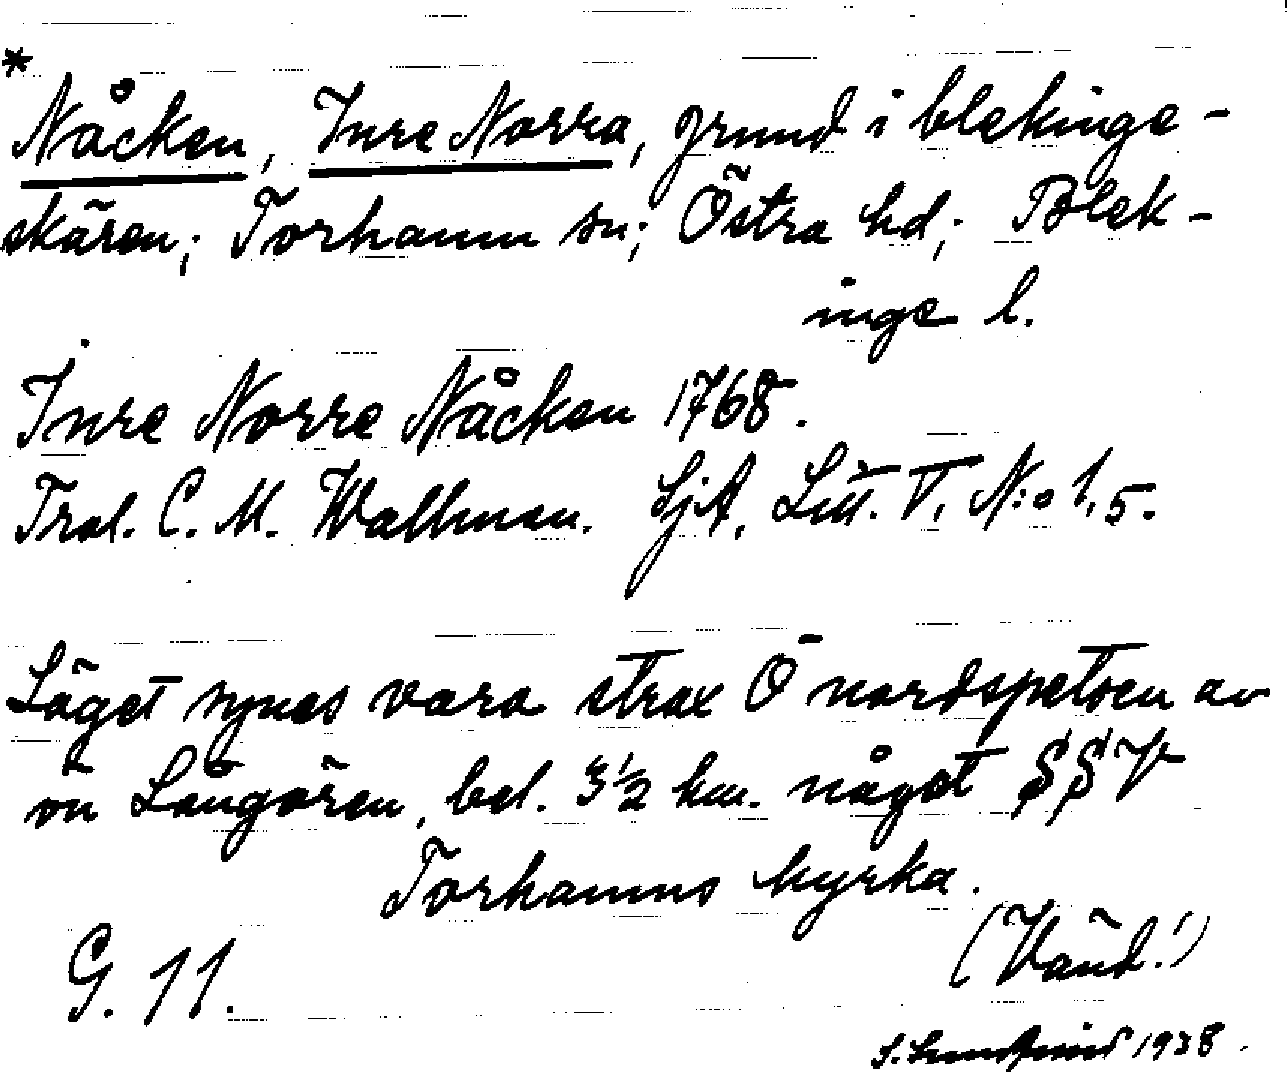 *
Nåcken, Inre Norra, grund i blekinge-
skären; Torhamn sn; Östra hd; Blek-
inge l.
Inre Norre Nåcken 1768.
Trol. C. M. Wallman. SjA, Litt. V, N:o 1,5.
Läget synes vara strax Ö nordspetsen av
ön Långören, bel. 3½ km. något SSV
Torhamns kyrka.
(Vänd!)
G. 11.
S. 1938.